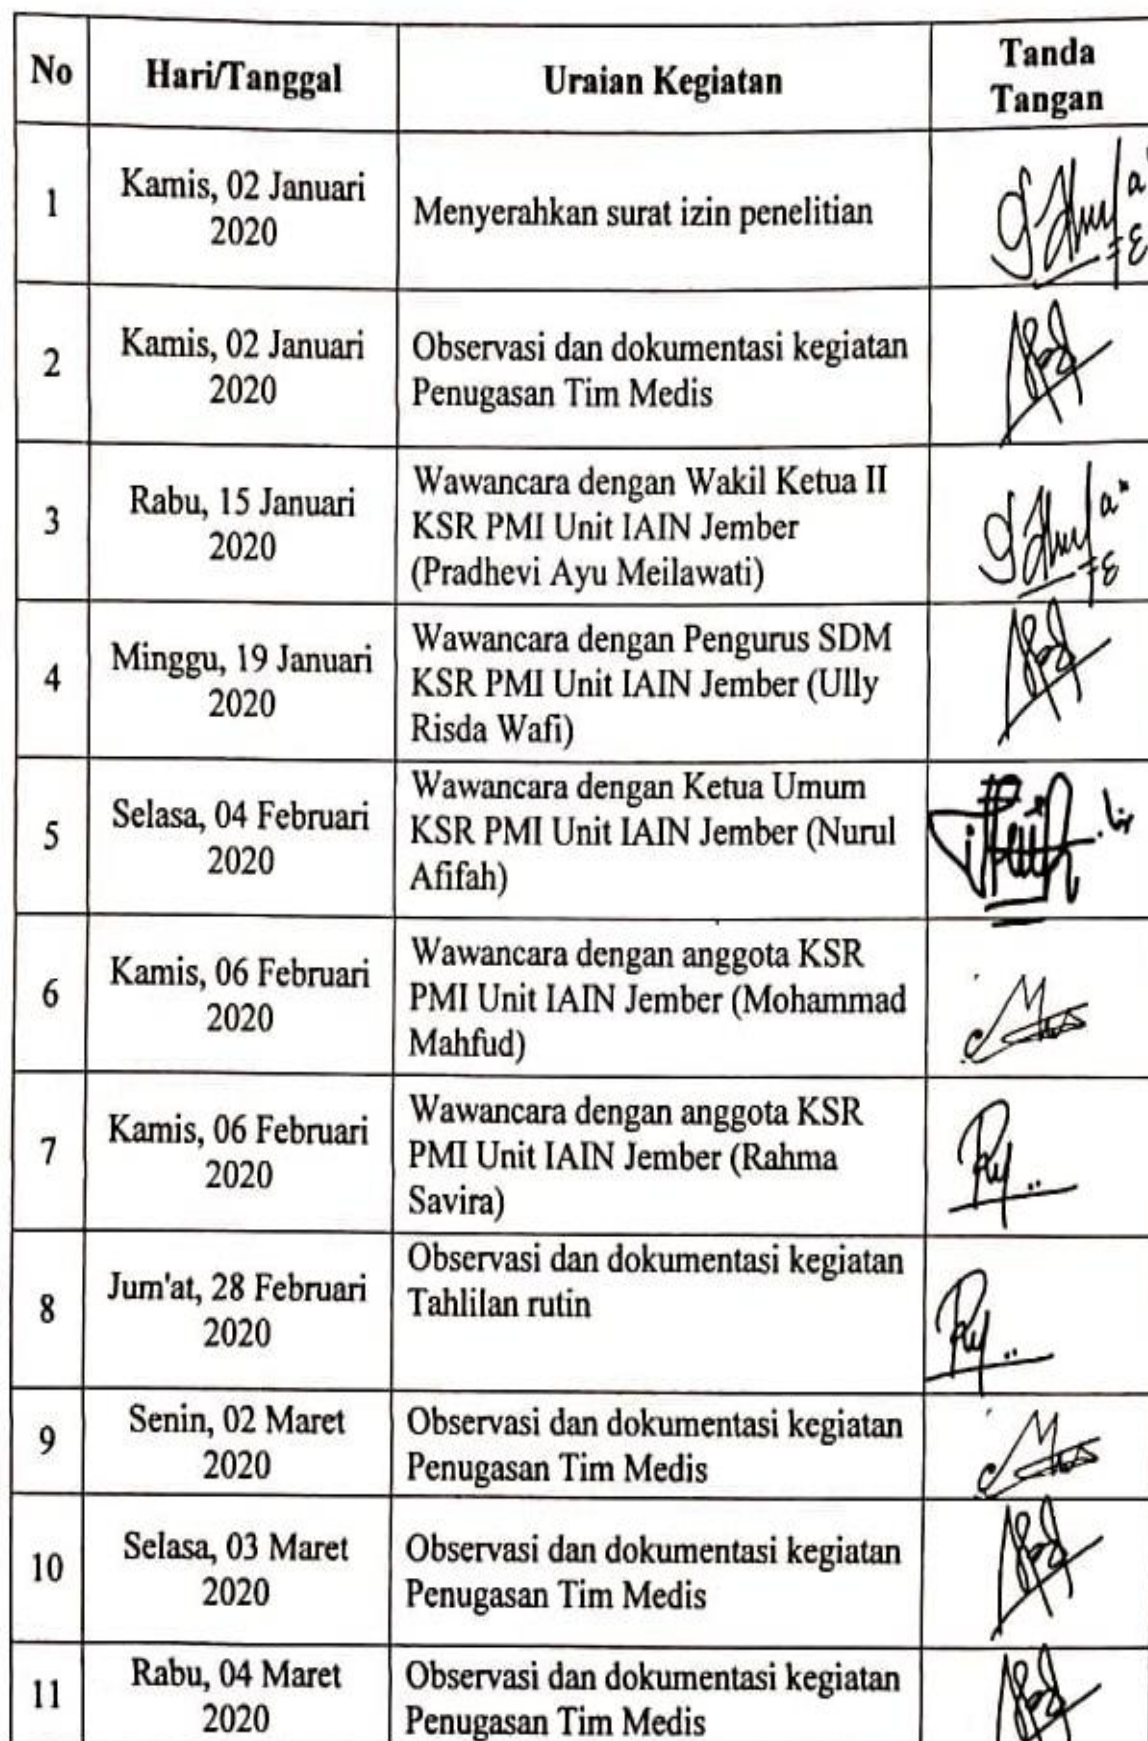 No
Hari/Tanggal
Uraian Kegiatan
Tanda
Tangan
1
Kamis, 02 Januari
2020
Menyerahkan surat izin penelitian
2
Kamis, 02 Januari
2020
Observasi dan dokumentasi kegiatan
Penugasan Tim Medis
3
Rabu, 15 Januari
2020
Wawancara dengan Wakil Ketua II
KSR PMI Unit IAIN Jember
(Pradhevi Ayu Meilawati)
4
Minggu, 19 Januari
2020
Wawancara dengan Pengurus SDM
KSR PMI Unit IAIN Jember (Ully
Risda Wafi)
5
Selasa, 04 Februari
2020
Wawancara dengan Ketua Umum
KSR PMI Unit IAIN Jember (Nurul
Afifah)
6
Kamis, 06 Februari
2020
Wawancara dengan anggota KSR
PMI Unit IAIN Jember (Mohammad
Mahfud)
7
Kamis, 06 Februari
2020
Wawancara dengan anggota KSR
PMI Unit IAIN Jember (Rahma
Savira)
8
Jum'at, 28 Februari
2020
Observasi dan dokumentasi kegiatan
Tahlilan rutin
9
Senin, 02 Maret
2020
Observasi dan dokumentasi kegiatan
Penugasan Tim Medis
10
Selasa, 03 Maret
2020
Observasi dan dokumentasi kegiatan
Penugasan Tim Medis
11
Rabu, 04 Maret
2020
Observasi dan dokumentasi kegiatan
Penugasan Tim Medis